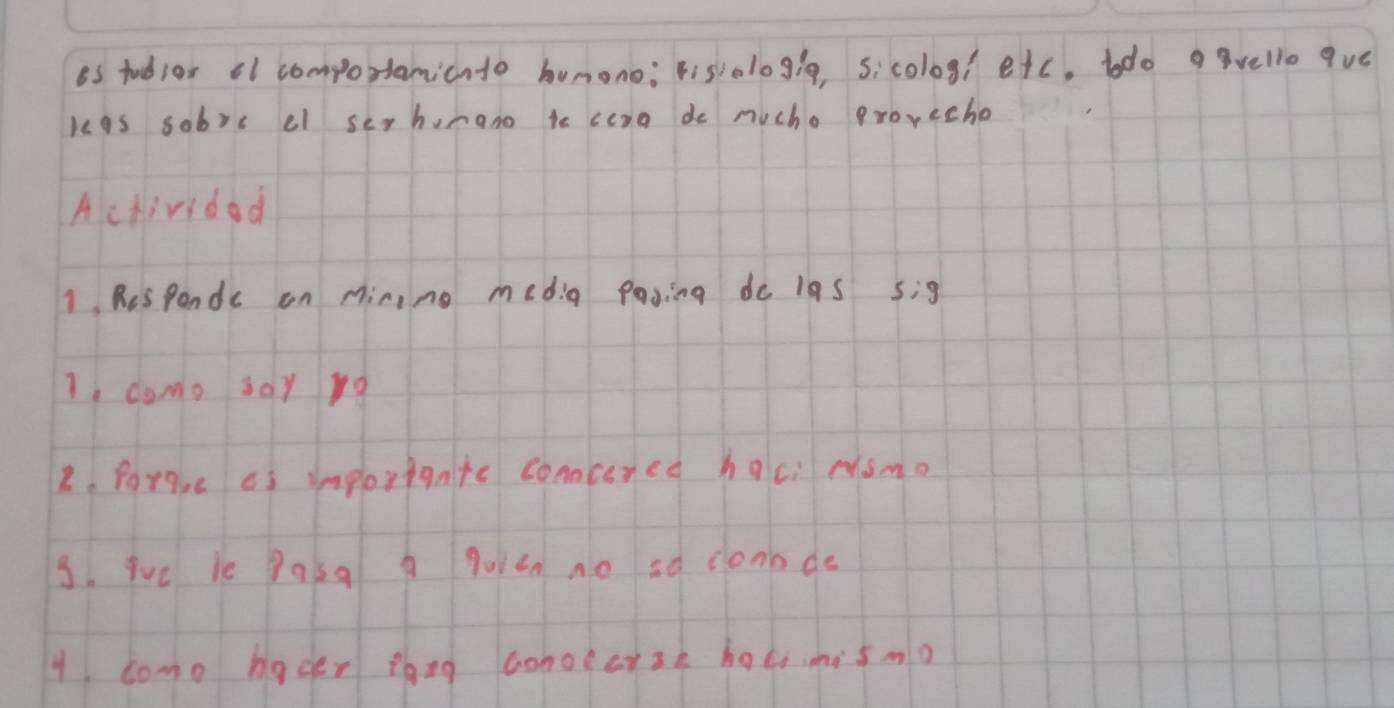 estudiar el comportamiento humano: fisiología, sicologí etc. todo aquello que
leas sobre el ser humano te cera de mucho provecho
Actividad
1. Responde en minimo media pagina de las sig
1. como soy yo
2. Porque es importante conocerce haci mismo
3. que le pasa a quien no se conoce
4. como hacer para conocerse haci mismo